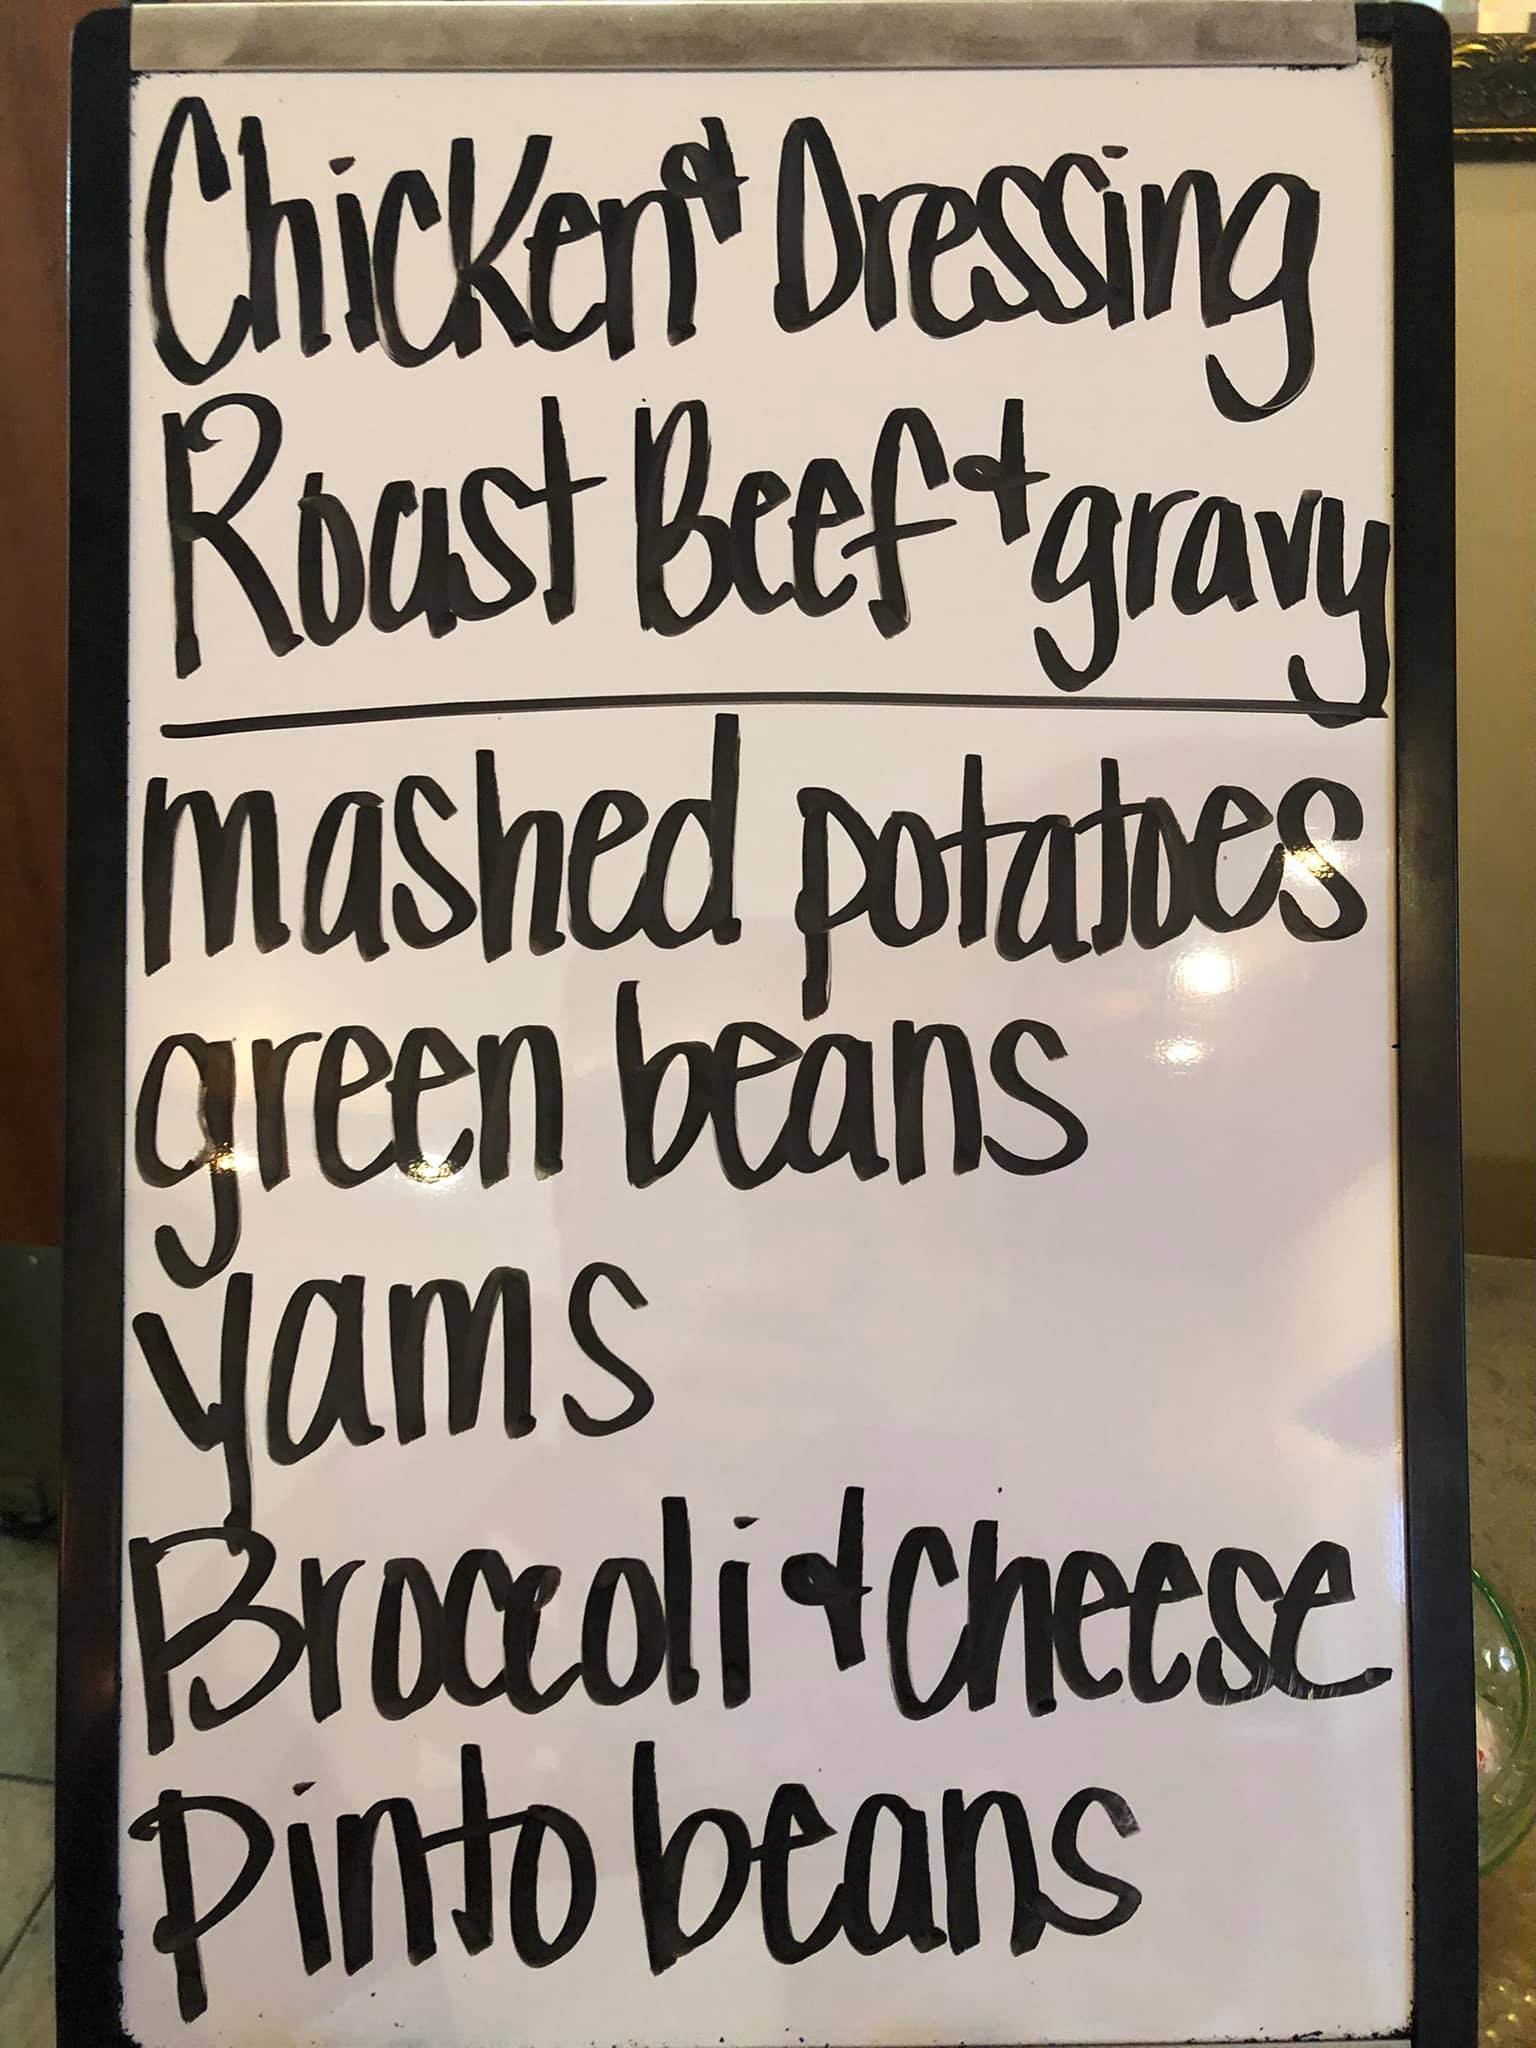 Chicken & Dressing
Roast Beef & gravy
mashed potatoes
green beans
yams
Broccoli & Cheese
Pinto beans